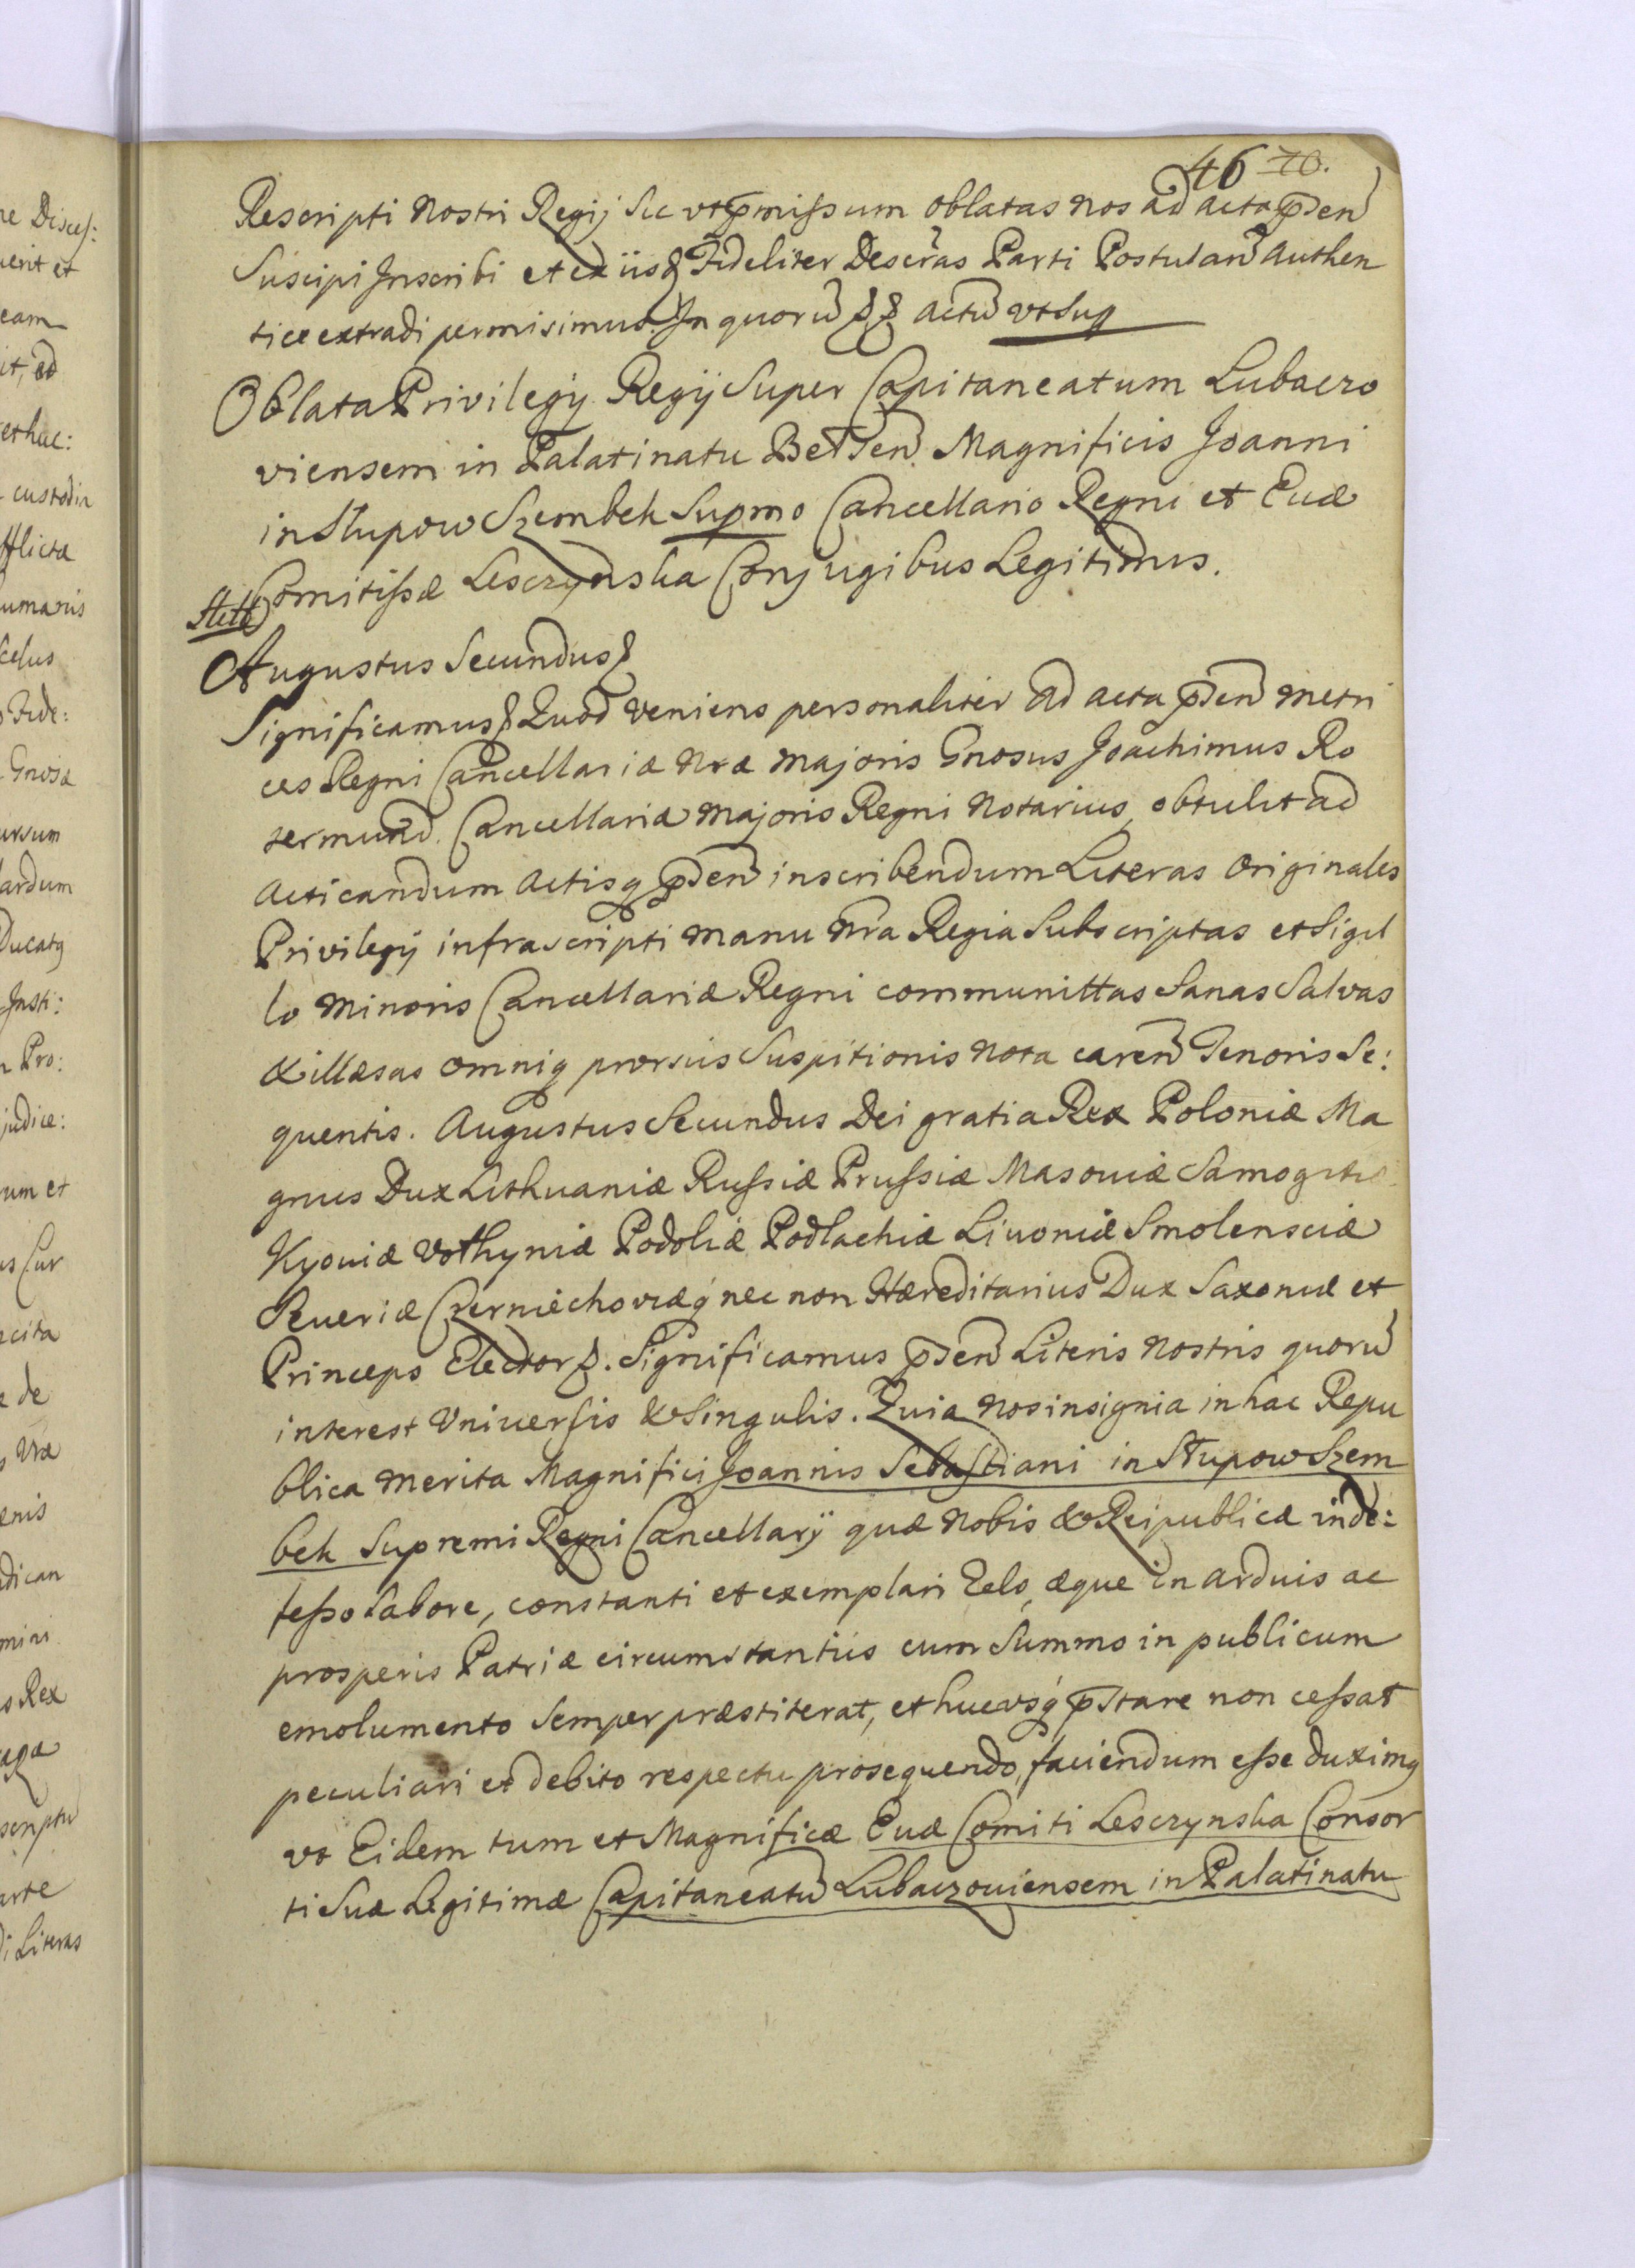 46 70.
Rescripti Nostri Regij Sic vt p̄missum oblatas nos ad acta p̄sen̄
Suscipi Inscribi et ex iis & Fideliter Descr̄as Parti Postulan̄ Authen
tice extradi permisimus. In quorū && Actū vt Sup
Oblata Privilegij Regij Super Capitaneatum Lubaczo
viensem in Palatinatu Belsen̄ Magnificis Joanni
in Słupow Szembek Supmo Cancellario Regni et Euæ
Comitissæ Lesczynska Conjugibus Legitimis.
Augustus Secundus &
Significamus & Quod veniens personaliter ad acta p̄sen̄ Metri
ces Regni Cancellariæ Nræ Majoris Gnosus Joachimus Ro
sermund. Cancellariæ Majoris Regni Notarius, obtulit ad
Acticandum Actisq p̄sen̄ inscribendum Literas Originales
Privilegij infrascripti Manu Nra Regia Subscriptas et Sigil
lo Minoris Cancellariæ Regni communittas Sanas Salvas
& illæsas omniq prorsus Suspitionis nota caren̄ Tenoris Se:
quentis. Augustus Secundus Dei gratia Rex Poloniæ Ma
gnus Dux Lithuaniæ Russiæ Prussiæ Masouiæ Samogitiæ
Kyouiæ Vołhyniæ Podoliæ Podlachiæ Liuoniæ Smolensciæ
Seueriæ Czerniechoviæq nec non Hæreditarius Dux Saxoniæ et
Princeps Elector &. Significamus p̄sen̄ Literis Nostris quorū
interest Vniuersis & Singulis. Quia Nos insignia in hac Repu
blica Merita Magnifici Joannis Sebastiani in Słupow Szem
bek Supremi Regni Cancellarij quæ Nobis & Reipublicæ inde:
fesso Labore, constanti et exemplari Zelo, æque in arduis ac
prosperis Patriæ circumstantiis cum Summo in publicum
emolumento Semper præstiterat, et hucvsq p̄stare non cessat
peculiari et debito respectu prosequendo, faciendum esse duximq
vt Eidem tum et Magnificæ Euæ Comiti Lesczynska Consor
ti Suæ Legitimæ Capitaneatū Lubaczouiensem in Palatinatu